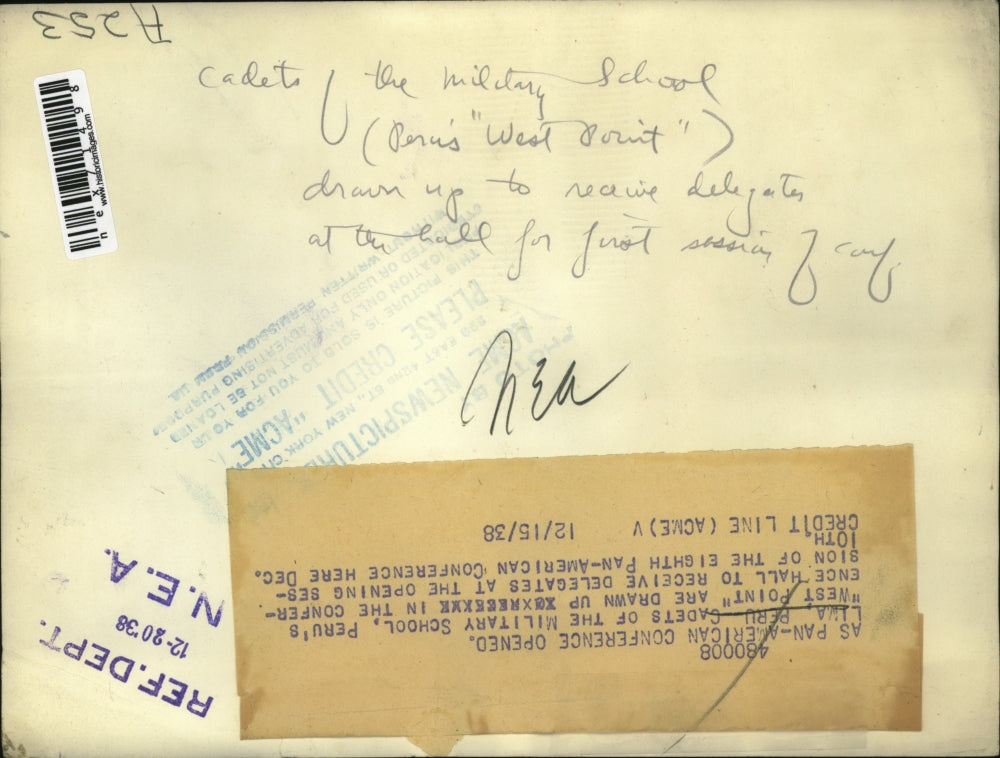 A253
cadets of the military School
(Peru's "West Point")
drawn up to receive delegates
at the hall for first session of conf.
nex 71498
www.historicimages.com
PHOTO BY
ACME NEWSPICTURES
EAST 42ND ST., NEW YORK CITY
PLEASE CREDIT "ACME"
THIS PICTURE IS SOLD TO YOU FOR YOUR
PUBLICATION ONLY AND MUST NOT BE LOANED
OR USED FOR ADVERTISING PURPOSES
WITHOUT WRITTEN PERMISSION FROM US
NEA
480008
AS PAN-AMERICAN CONFERENCE OPENED.
LIMA, PERU - CADETS OF THE MILITARY SCHOOL, PERU'S
"WEST POINT" ARE DRAWN UP IN THE CONFER-
ENCE HALL TO RECEIVE DELEGATES AT THE OPENING SES-
SION OF THE EIGHTH PAN-AMERICAN CONFERENCE HERE DEC.
10TH.
CREDIT LINE (ACME) V 12/15/38
REF.DEPT.
12-20'38
N.E.A.